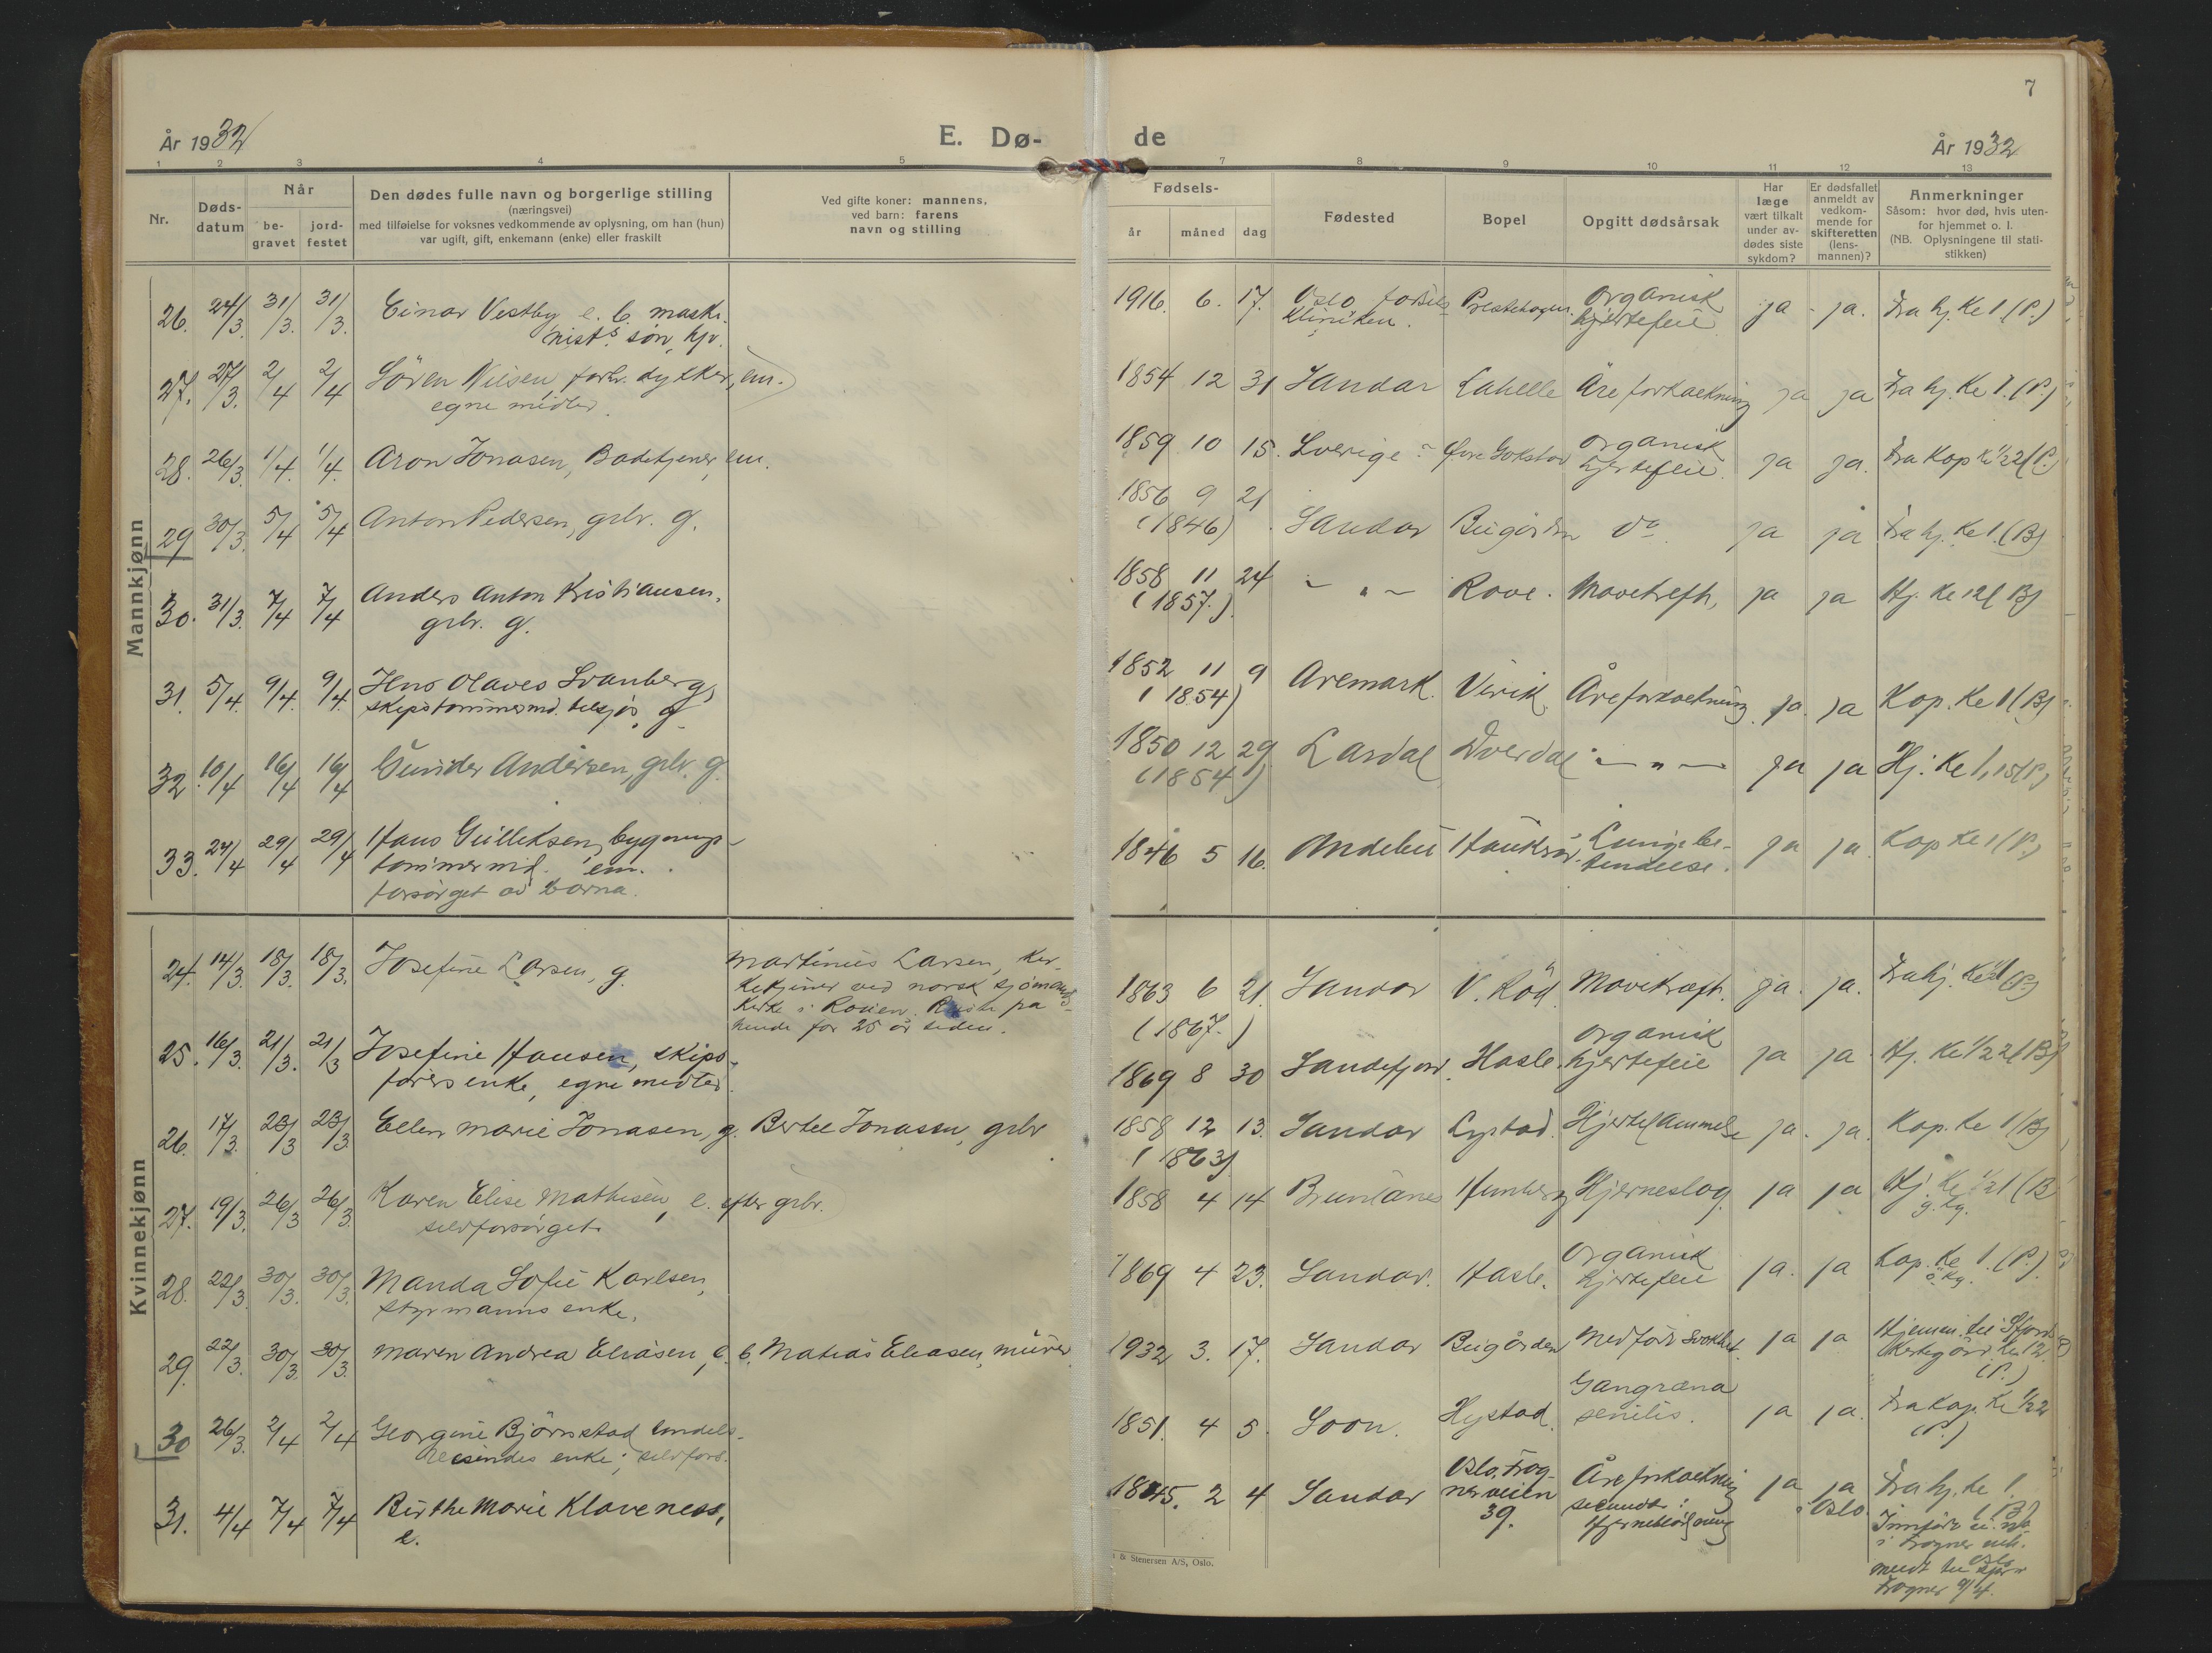 7
År 1932
E. Dø-
de
År 1932
1 2 3 4 5 7 8 9 10 11 12 13
Nr.
Døds-
datum
Når
be-
gravet
jord-
festet
Den dødes fulle navn og borgerlige stilling
(næringsvei)
med tilføielse for voksnes vedkommende av oplysning, om han (hun)
var ugift, gift, enkemann (enke) eller fraskilt
Ved gifte koner: mannens,
ved barn: farens
navn og stilling
Fødsels-
år måned dag
Fødested
Bopel
Opgitt dødsårsak
Har
læge
vært tilkalt
under av-
dødes siste
sykdom?
Er dødsfallet
anmeldt av
vedkom-
mende for
skifteretten
(lens-
mannen)?
Anmerkninger
Såsom: hvor død, hvis uten-
for hjemmet o. l.
(NB. Oplysningene til stati-
stikken)
Mannkjønn
26. 24/3. 31/3. 31/3. Einar Vestby e. b. maski-
nists søn, hjv.
1916. 6. 17. Oslo fødsels
Kliniken. Prestehagen. Organisk
hjertefeil ja - ja. Fra hj. Kl 1 (P.)
27. 27/3. 2/4 2/4 Sören Nilsen, forh. dykker, em.
egne midler.
1854 12 31 Sandar Lahelle Åreforkalkning ja ja Fra hj. Kl 1. (P.)
28. 26/3. 1/4. 1/4. Aron Jonasen, Badetjener, em.
1859 10 15. Sverige Øvre Gokstad organisk
hjertefeil. ja ja. Fra Kap Kl 1/2 2 (P.)
29 30/3. 5/4 5/4 Anton Pedersen, grbr. g.
1856 9 21
(1846) Sandar Bugården do. ja ja Fra hj. Kl 1. (B)
30. 31/3. 7/4 7/4 Anders Anton Kristiansen,
grbr. g.
1858 11 24
(1857.) - " - Rove. Mavekreft, ja ja Hj. Kl 12 (B)
31. 5/4. 9/4. 9/4. Jens Olaves Svanberg,
skipstømmermd. tilsjøs, g.
1852 11 9
(1854) Aremark. Virik. Åreforkalkning ja. ja Kap. Kl 1 (B)
32. 10/4 16/4 16/4 Gunder Andersen, grbr. g.
1850 12 29
(1854) Lardal Dverdal - " - ja ja Hj. Kl 1,15 (P.)
33. 24/4 29/4 29/4 Hans Gulliksen, bygnings-
tømmermd. em.
forsörget av barna.
1846 5 16. Andebu Haukerød. Lungebe-
tendelse. ja ja. Kap Kl 1 (P.)
Kvinnekjønn
24. 14/3. 18/3. 18/3. Josefine Larsen, g. Martinius Larsen, kir-
ketjener ved norsk sjömands-
kirke i Rouen. Reiste fra
hende for 25 år siden.
1863 6 21. Sandar V. Röd Mavekræft. ja. ja. Fra hj. Kl 1/2 1 (P.)
(1867.)
25. 16/3. 21/3. 21/3 Josefine Hansen, skips-
førers enke, egne midler.
1869 8 30 Sandefjord. Hasle. organisk
hjertefeil ja ja Hj. Kl 1/2 2 (B)
26. 17/3. 23/3 23/3 Ellen Marie Jonasen, g. Bertel Jonasen, grbr
1858 12 13. Sandar Lystad. Hjertelammelse ja. ja. Kap. Kl 1 (B)
(1863)
27. 19/3. 26/3 26/3. Karen Elise Mathisen, e. efter grbr.
selvforsørget.
1858 4 14 Brunlanes Humberg Hjerneslag. ja ja Hj. Kl 1/2 1 (B
g. kg.
28. 22/3. 30/3. 30/3. Manda Sofie Karlsen,
styrmanns enke.
1869 4 23. Sandar. Hasle. Organisk
hjertefeil ja. ja Kap. Kl 1. (P.)
ö. kg.
29. 22/3. 30/3. 30/3. Maren Andrea Eliasen, e. b. Matias Eliasen, murer
1932 3. 17. Sandar Bugården Medfödt svakhet. ja ja Hjemm. til Sfjord
Kirkegård. Kl 12.
(P.)
30 26/3. 2/4 2/4 Georgine Björnstad handels-
reisendes enke; selvfors.
1851. 4 5. Soon. Hystad. Gangræna
senilis. ja ja. Fra Kap. Kl 1/2 2
(P.)
31. 4/4 7/4 7/4 Birthe Marie Klaveness,
e.
1845. 2 4 Sandar Oslo, Frog-
nerveien
39. Åreforkalkning
secundt:
Hjerneblödning ja ja
Oslo. Fra hj. kl 1.
(B)
Innført u. nr.
i Frogner
meldt til Oslo
Frogner 9/4.
& Stenersen A/S, Oslo.